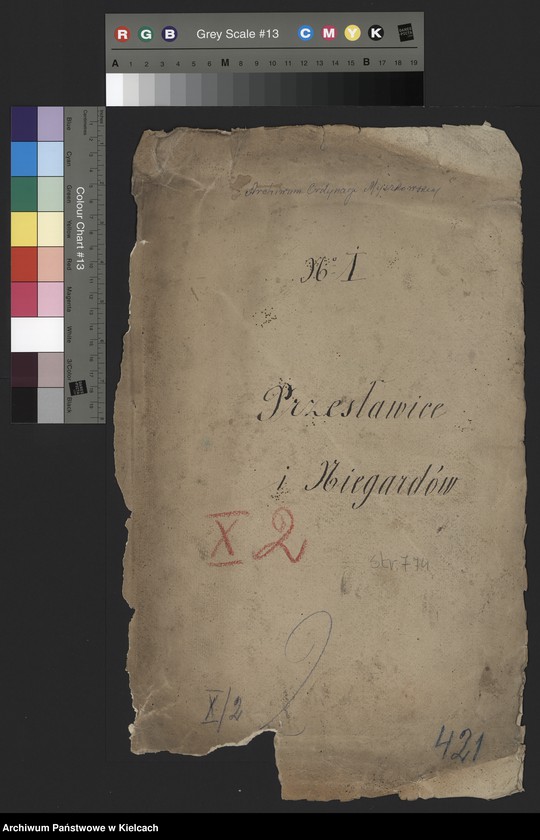 R G B Grey Scale #13 C M Y K
A 1 2 3 4 5 6 M 8 9 10 11 12 13 14 15 B 17 18 19
Colour Chart #13
Blue
Cyan
Green
Yellow
Red
Magenta
White
3/Color
Black
Ordynacji Myszkowskiej
No I
Przesławice
i Niegardów
X 2
str 774
X/2
2
421
Archiwum Państwowe w Kielcach